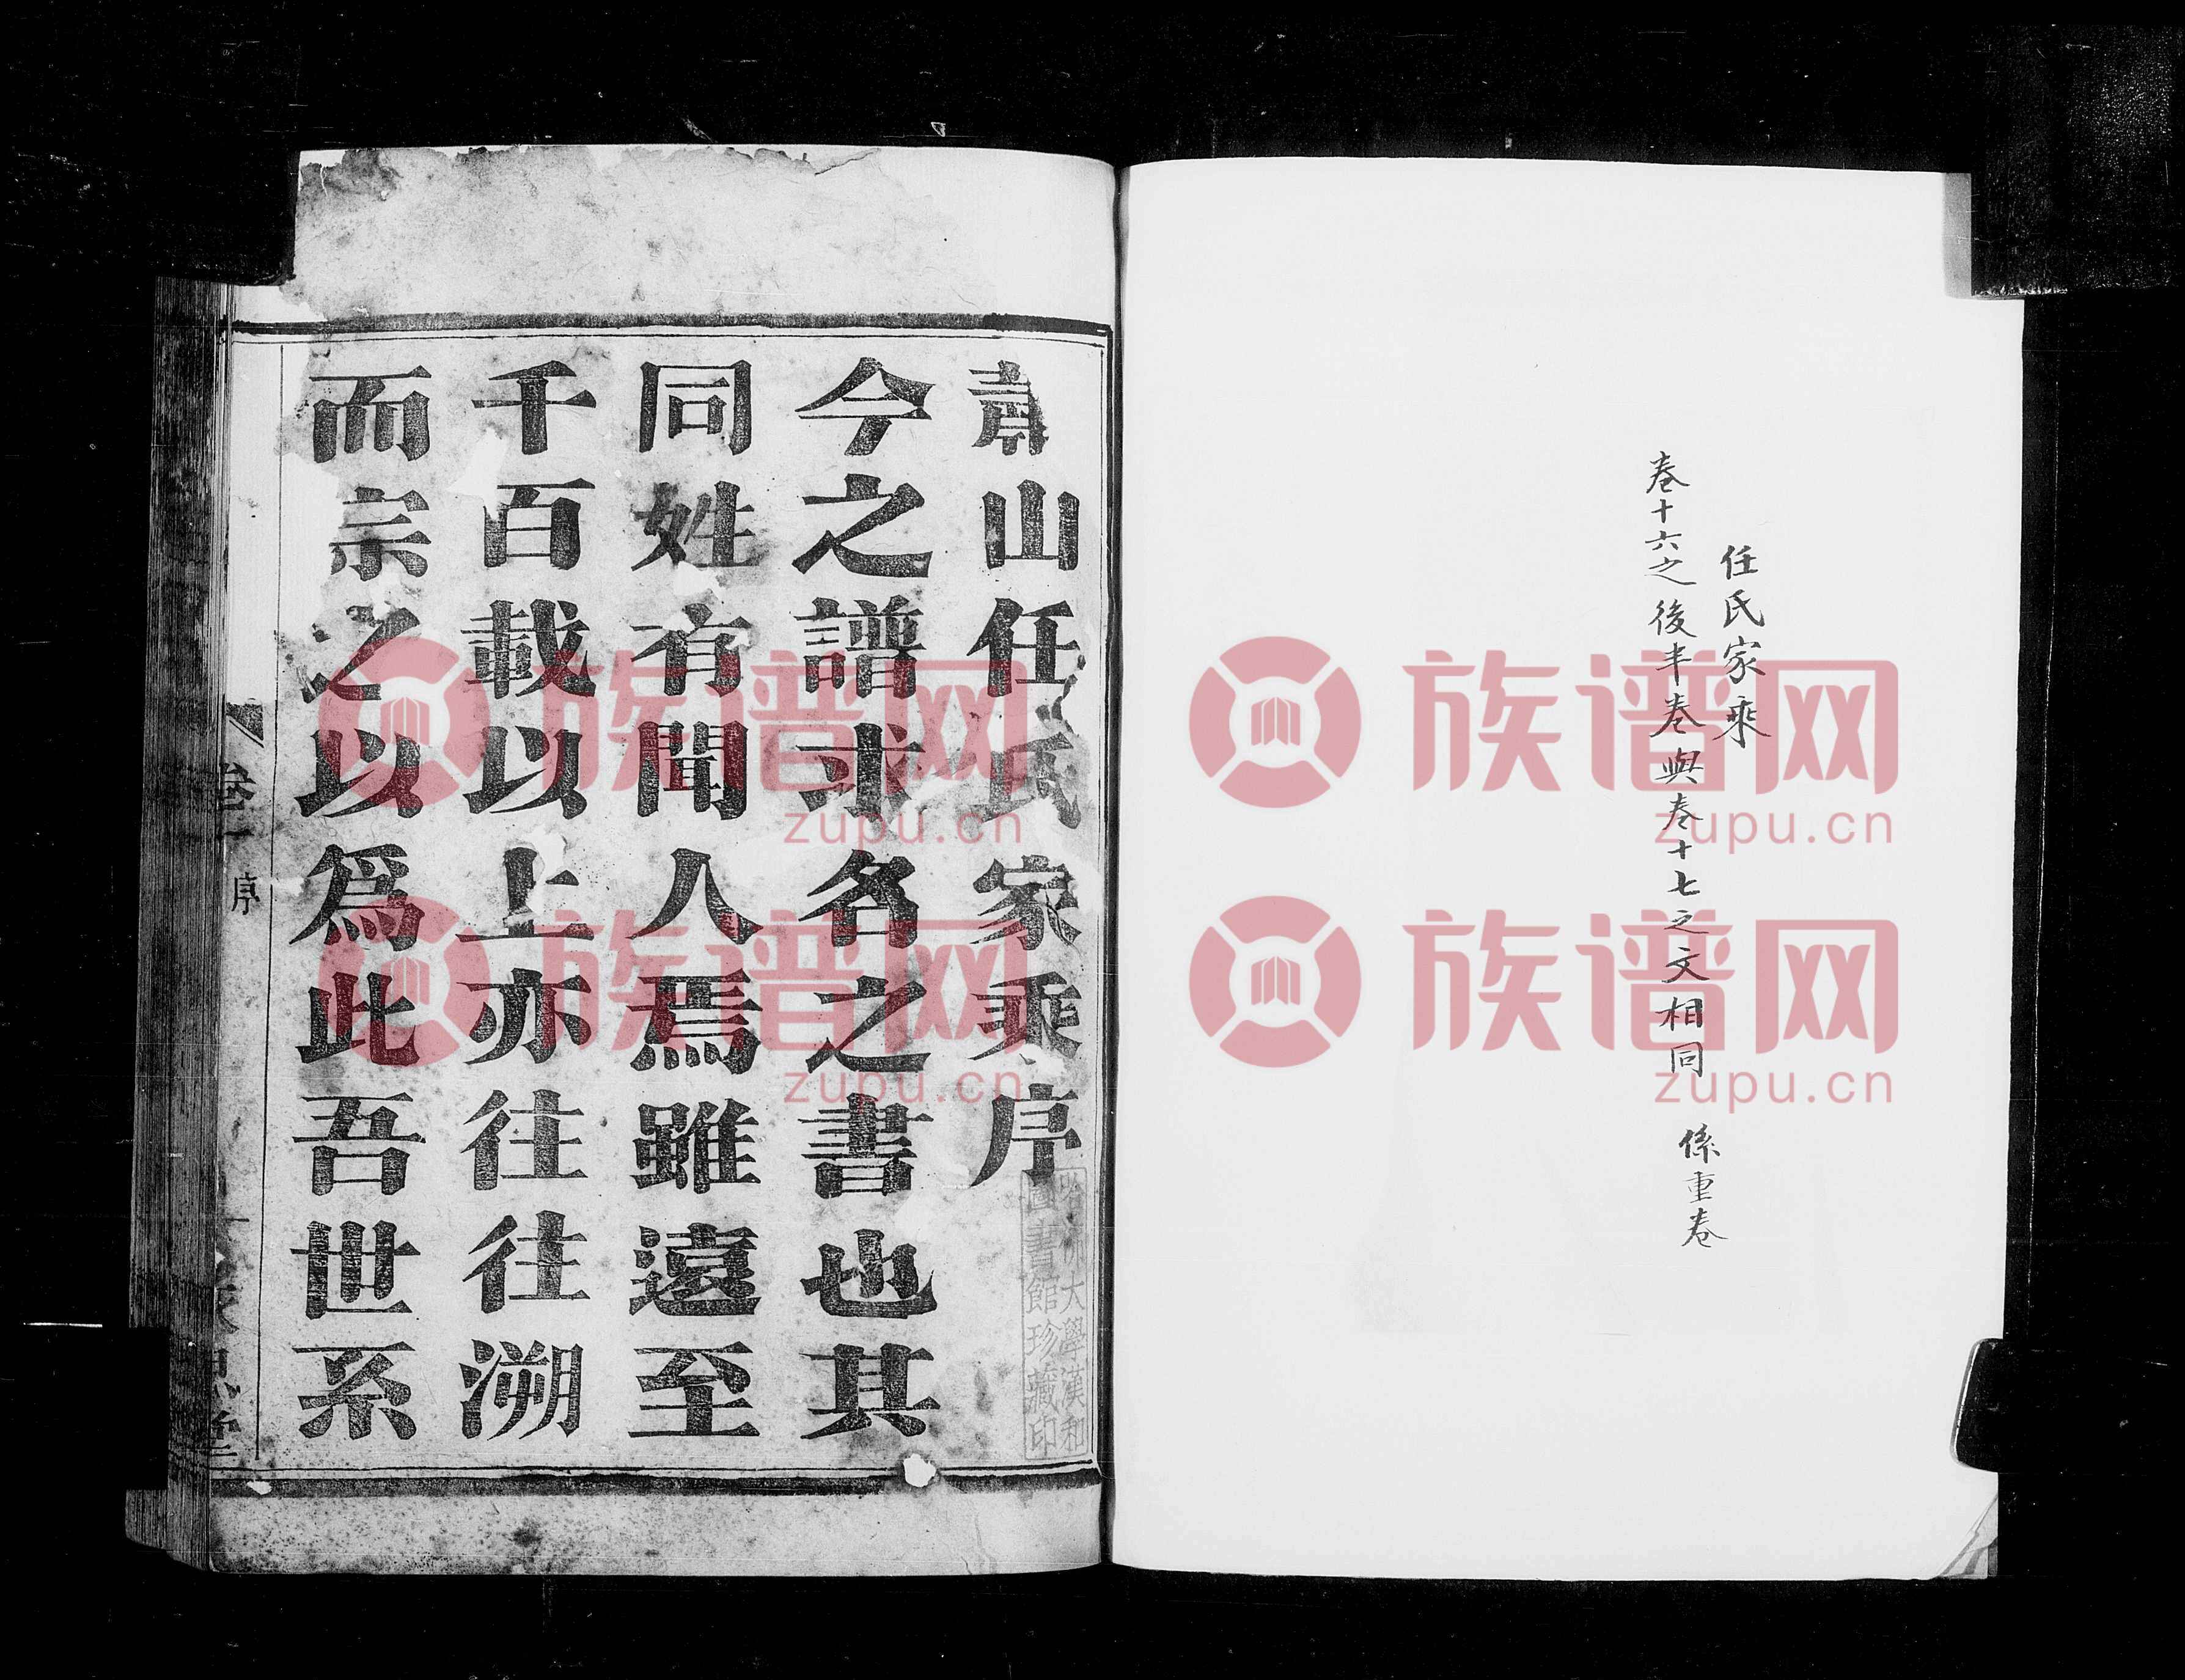 任氏家乘
卷十六之後半卷與卷十七之文相同 係重卷
山任氏家乘序
今之譜求名之書也其
同姓有聞人焉雖遠至
千百載以上亦往往溯
而宗之以爲此吾世系
卷一 序
哈佛大學漢和
圖書館珍藏印
族谱网
zupu.cn
族谱网
zupu.cn
族谱网
zupu.cn
族谱网
zupu.cn